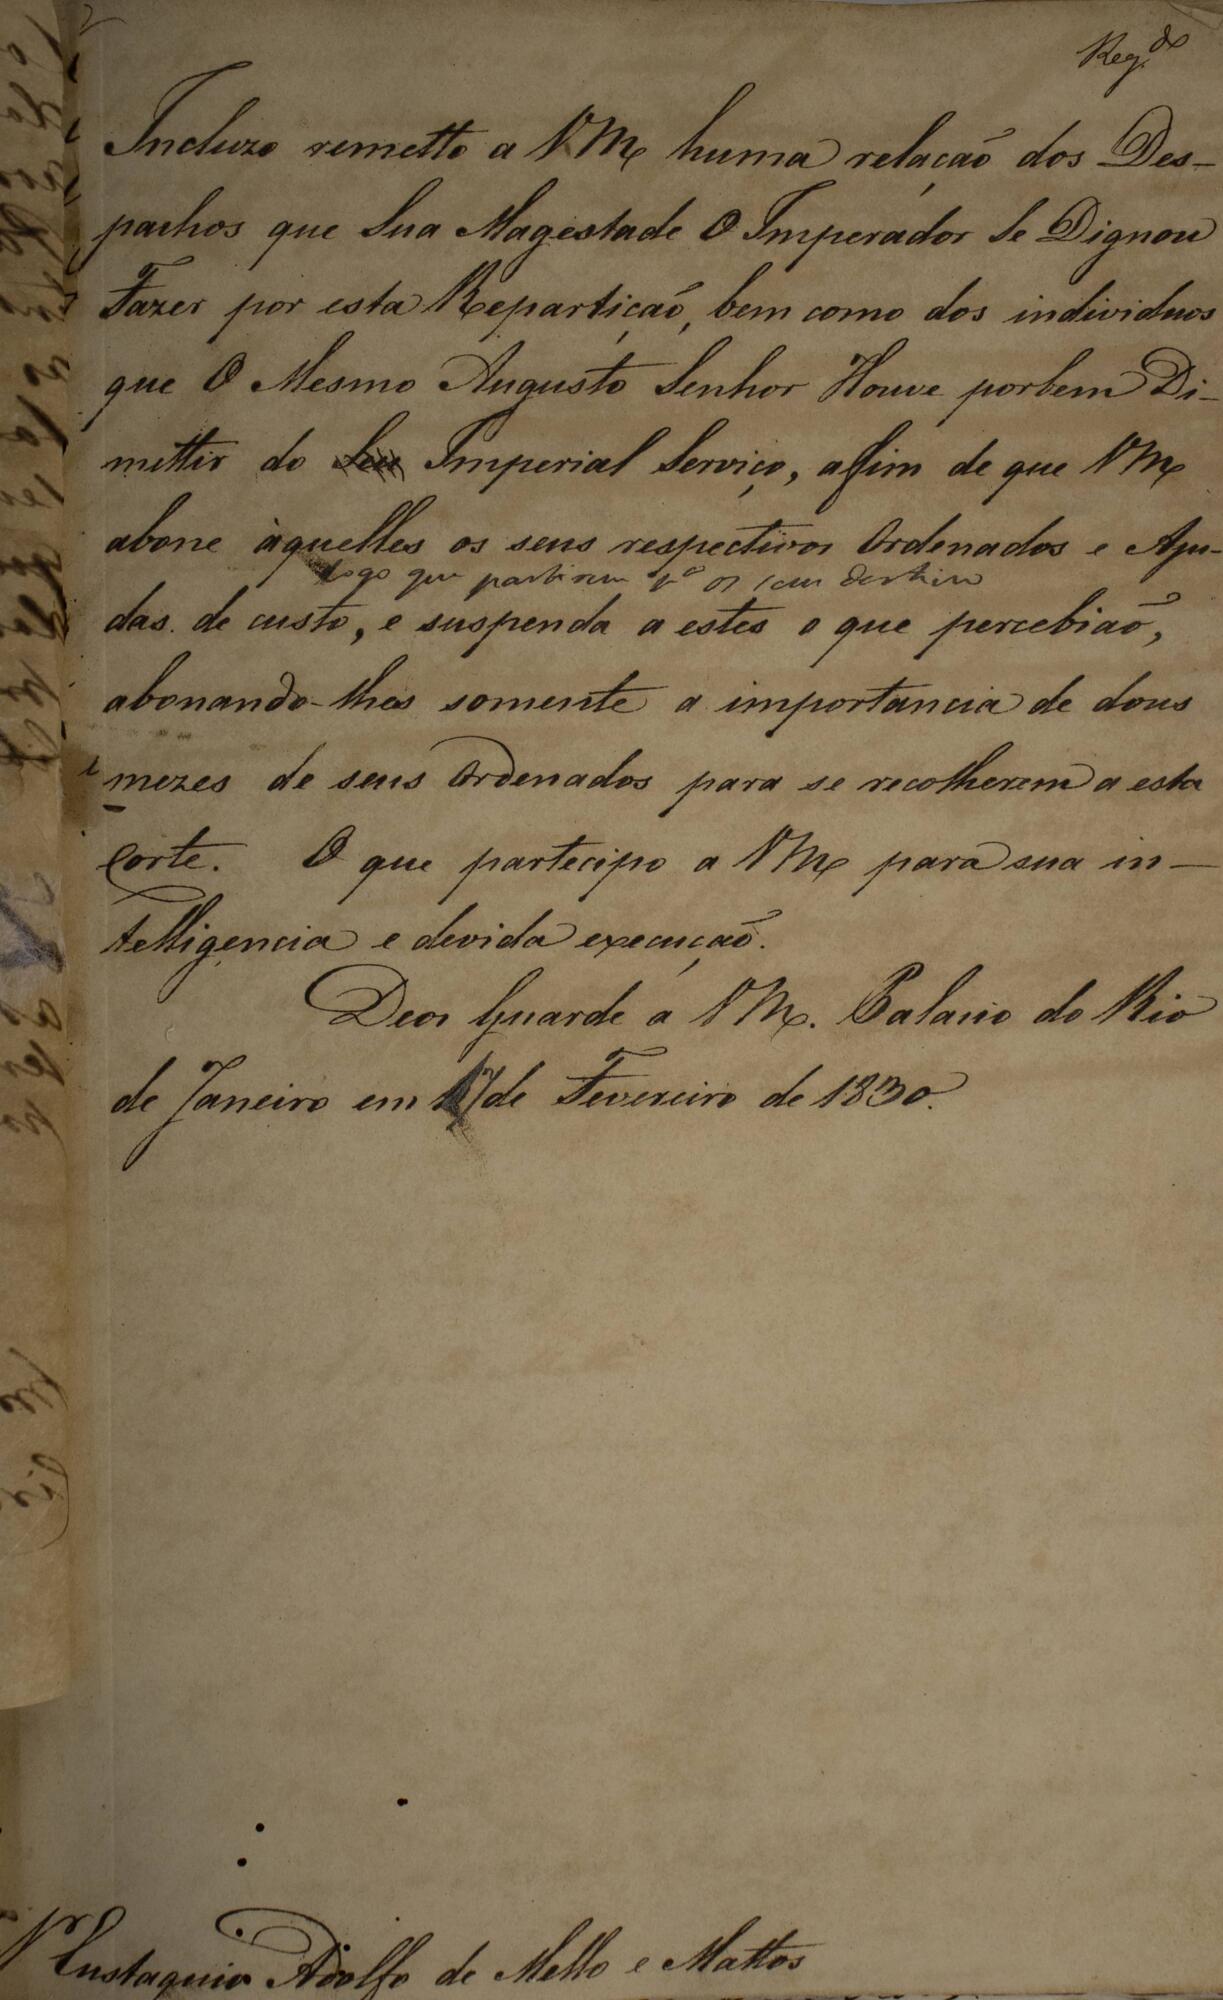 Reg.do
Incluzo remetto a VMce huma relação dos Des-
pachos que Sua Magestade O Imperador Se Dignou
Fazer por esta Repartição, bem como dos individuos
que O Mesmo Augusto Senhor Houve porbem Di-
mittir do Seu Imperial Serviço, afim de que VMce
abone àquelles os seus respectivos Ordenados e Aju-
logo que partirem pa os seus destinos
das de custo, e suspenda a estes o que percebião,
abonando-lhes somente a importancia de dous
mezes de seus Ordenados para se recolherem a esta
Corte. O que partecipo a VMce para sua in-
telligencia e devida execução.
Deos Guarde a VMce. Palacio do Rio
de Janeiro em 17 de Fevereiro de 1830.
Sr Eustaquio Adolfo de Mello e Mattos